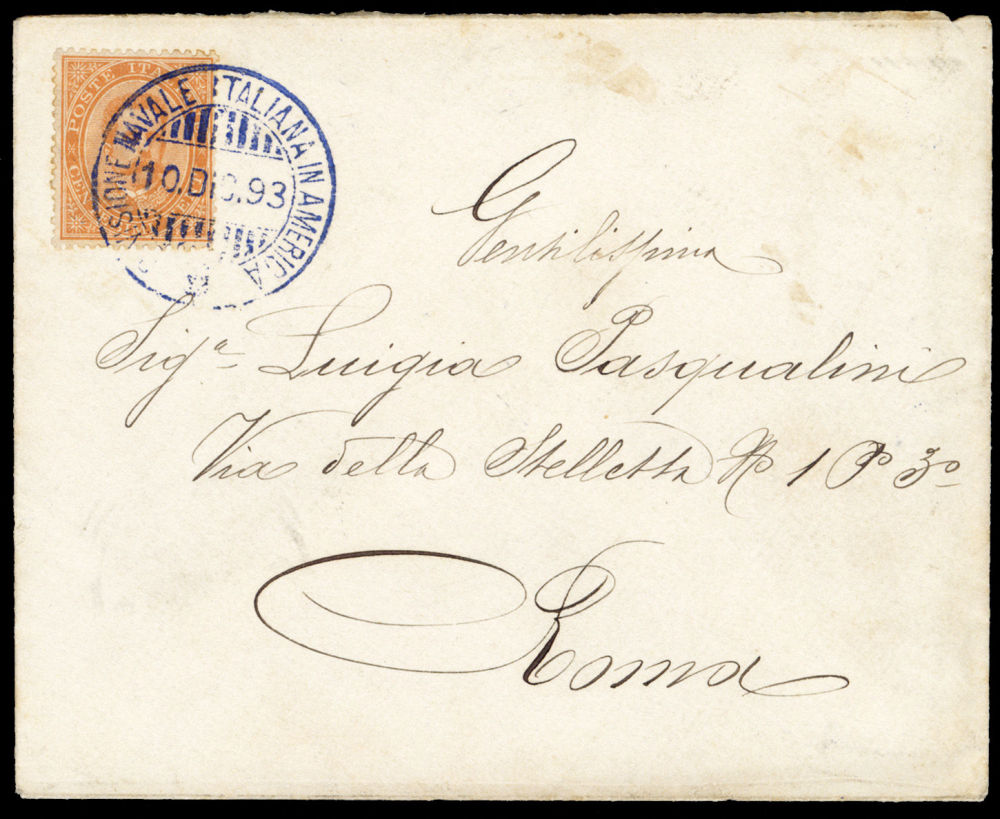 POSTE ITA
CEN
NAVALE ITALIANA IN AMERICA
10.DIC.93
Gentilissima
Sigª Luigia Pasqualini
Via della Stelletta No 1 Po 3o
Roma